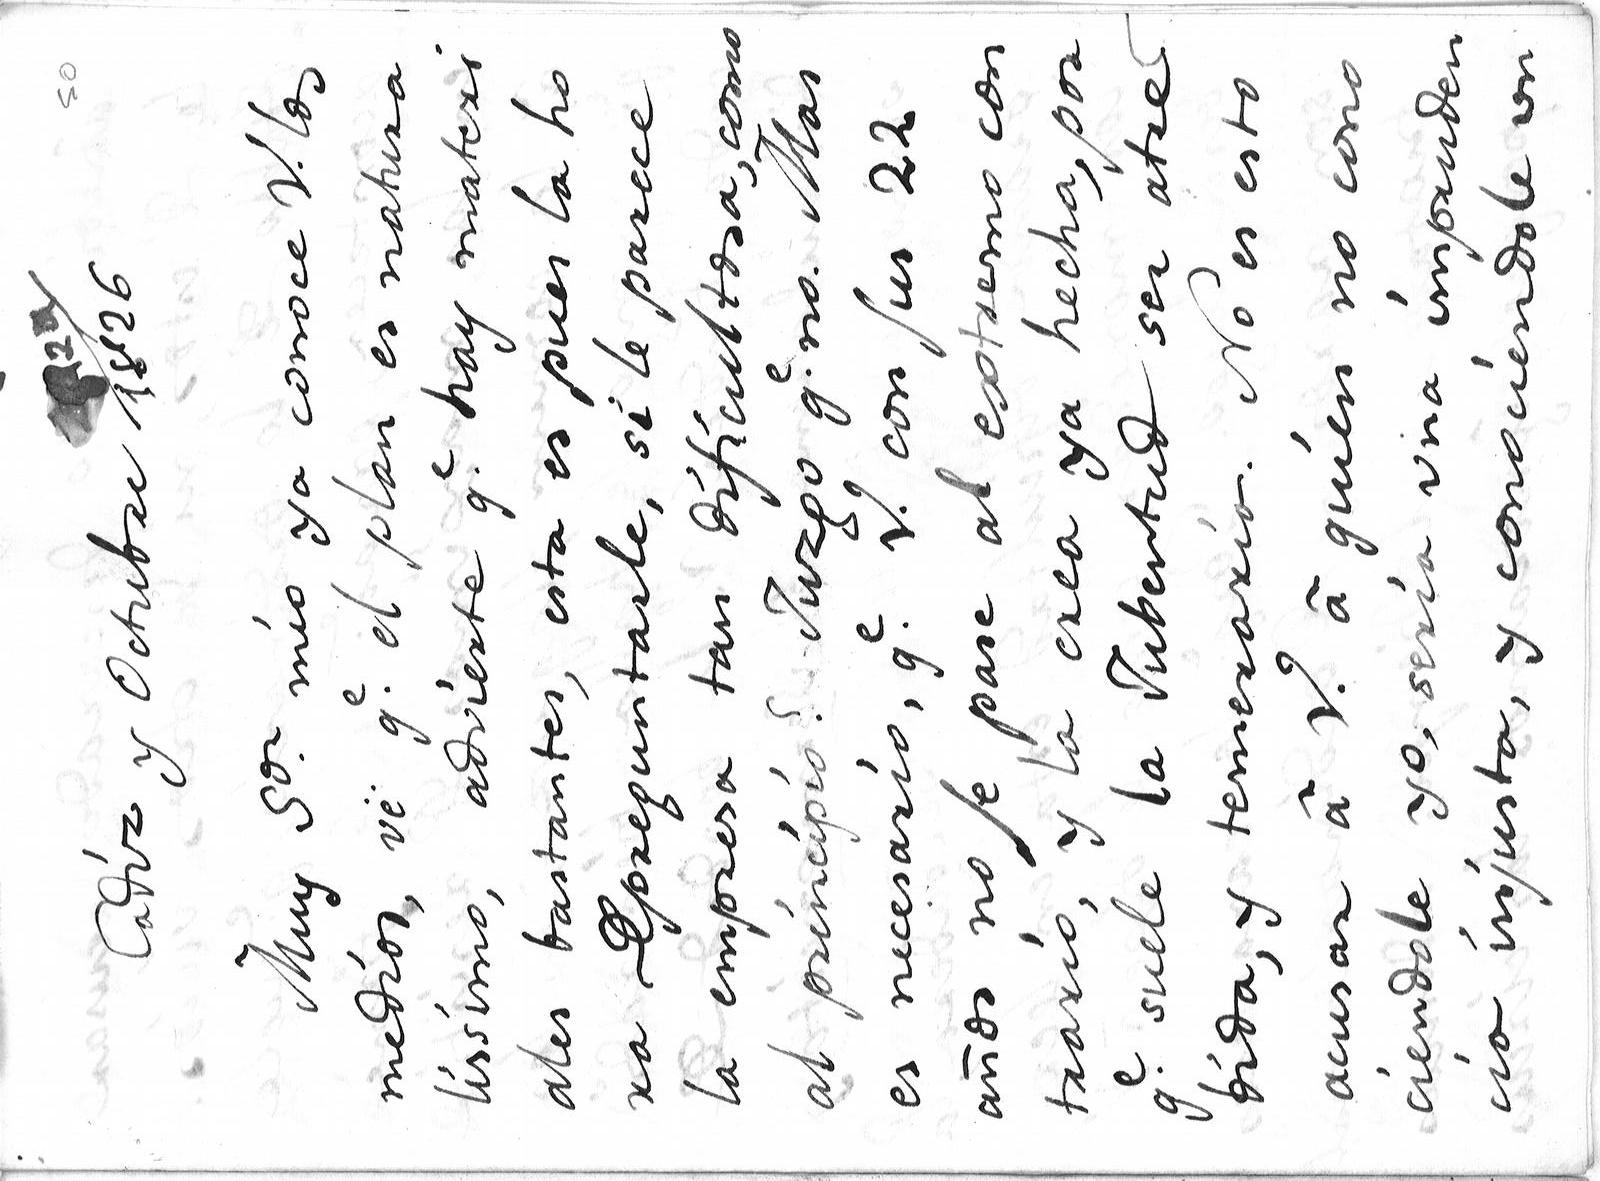 50
Cadiz y Octubre 22/1826
Muy Sor. mio ya conoce V. los
medios, vé qe. el plan es natura
lissimo, advierte qe. hay materi
ales bastantes, esta es pues la ho
ra preguntarle, si le parece
la empresa tan dificultosa, como
al principio? Juzgo qe. no. Mas
es necesario, qe. V. con sus 22
años no se pase al extremo con
trario, y la crea ya hecha, por
qe. suele la Jubentud ser atre
bida, y temeraria. No es esto
acusar à V. à quien no cono
ciendole yo, seria una impruden
cia injusta, y conociendole un